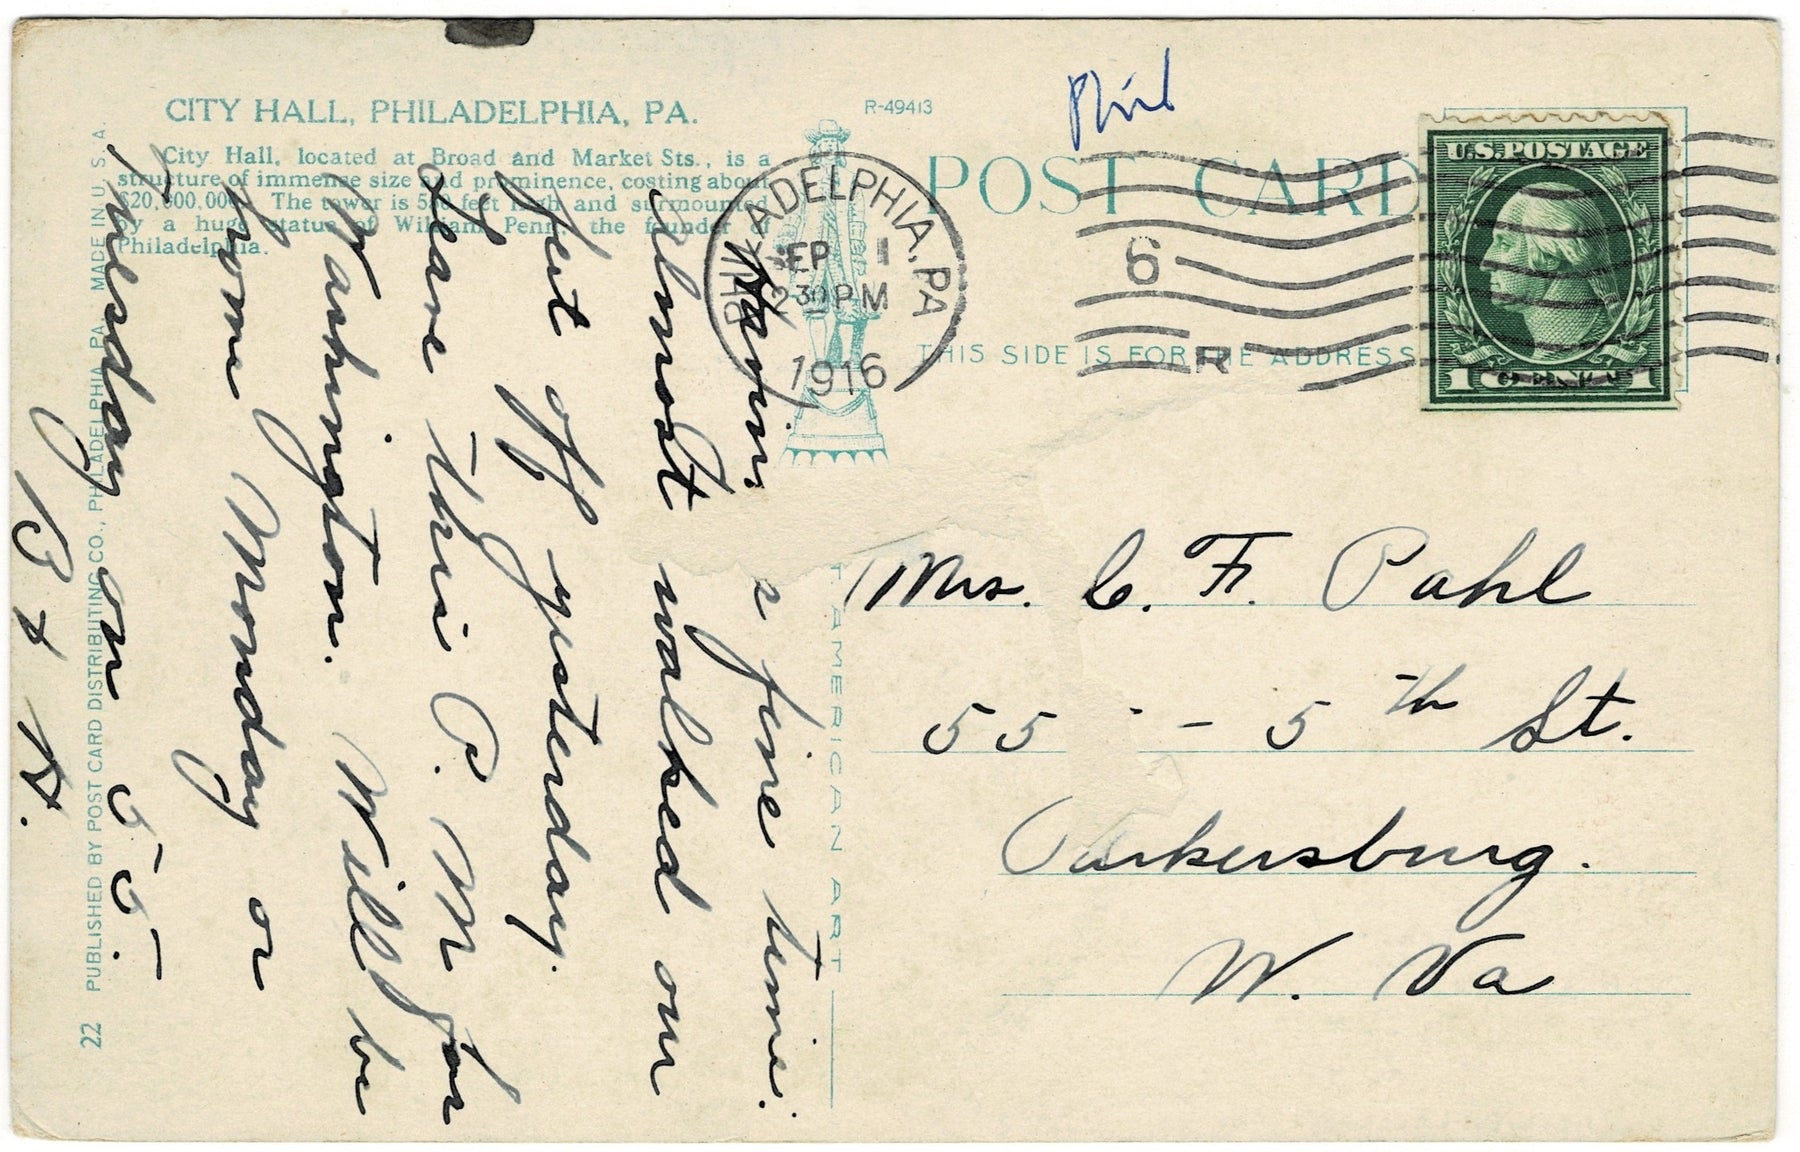 CITY HALL, PHILADELPHIA, PA.
City Hall, located at Broad and Market Sts., is a
structure of immense size and prominence, costing about
$20,000,000. The tower is 580 feet high and surmounted
by a huge statue of William Penn, the founder of
Philadelphia.
R-49413
Phil
POST CARD
THIS SIDE IS FOR THE ADDRESS
PHILADELPHIA, PA
SEP 1
2 30 PM
1916
6
R
U.S. POSTAGE
1 CENT 1
fine time.
Almost walked our
feet off yesterday.
Leave this P. M for
Washington. Will be
home Monday or
Tuesday on 55.
B & H.
Mrs. C. F. Pahl
55 - 5th St.
Parkersburg.
W. Va
AMERICAN ART
22 PUBLISHED BY POST CARD DISTRIBUTING CO., PHILADELPHIA, PA. MADE IN U.S.A.